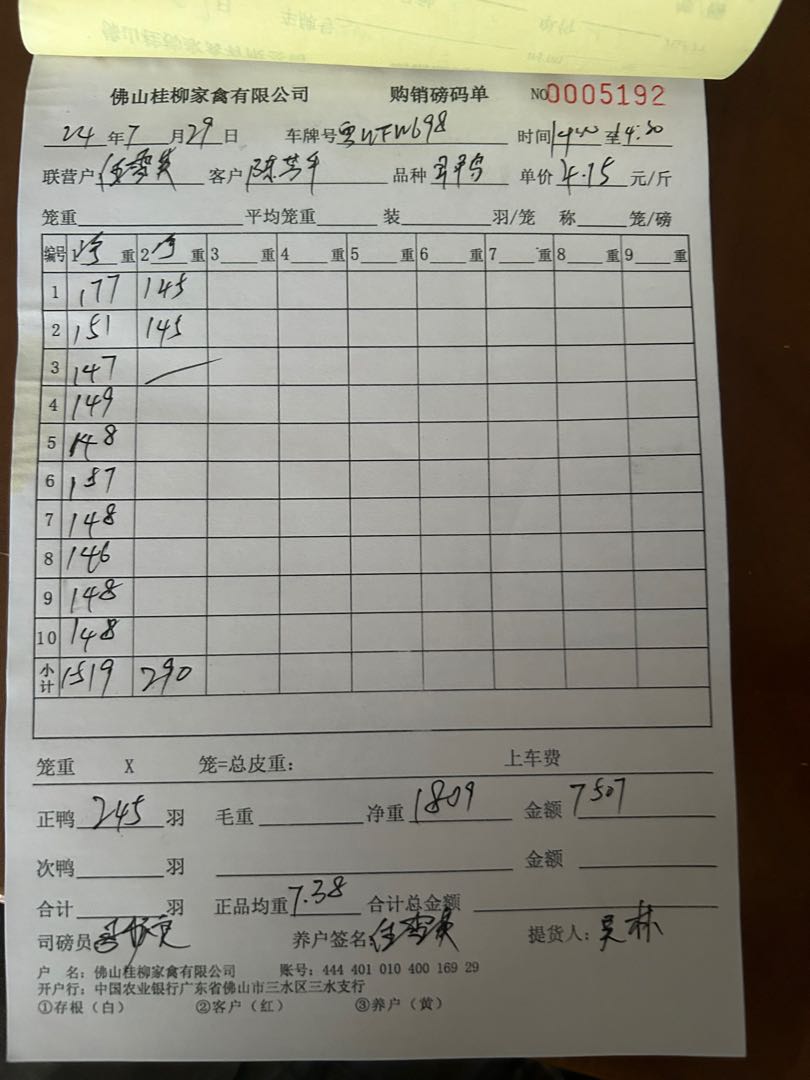 佛山桂柳家禽有限公司 购销磅码单 NO0005192
24年7月29日 车牌号粤 时间14:00至14:30
联营户任雪英 客户陈芳平 品种 单价4.15元/斤
笼重 平均笼重 装 羽/笼 称 笼/磅
编号 1净重 2净重 3 重 4 重 5 重 6 重 7 重 8 重 9 重
1 177 145
2 151 145
3 147
4 149
5 148
6 157
7 148
8 146
9 148
10 148
小计 1519 290
笼重 X 笼=总皮重： 上车费
正鸭245羽 毛重 净重1809 金额7507
次鸭 羽 金额
合计 羽 正品均重7.38 合计总金额
司磅员 养户签名任雪英 提货人：吴林
户 名：佛山桂柳家禽有限公司 账号：444 401 010 400 169 29
开户行：中国农业银行广东省佛山市三水区三水支行
①存根（白） ②客户（红） ③养户（黄）